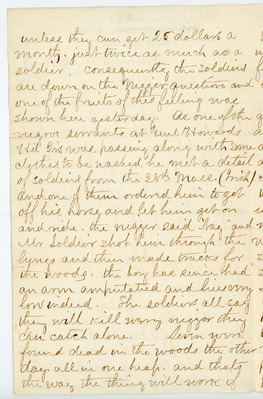 unless they can get 25 dollars a
month, just twice as much as a
soldier. Consequently the Soldiers
are down on the Nigger question and
one of the fruits of this feeling was
shown here yesterday. As one of the
negro servants at Genl Howards
Hd Qrs was passing along with some
clothes to be washed he met a detail
of Soldiers from the 28th Mass. (Irish)
and one of them ordered him to get
off his horse and let him get on
and ride. the nigger said Nay and
Mr Soldier shot him through the
lungs and then made tracks for
the woods. the boy has since had
an arm amputated and lies very
low indeed. The soldiers all say
they will kill every nigger they
can catch alone. Seven were
found dead in the woods the other
day all in one heap. and thats
the way the thing will work if